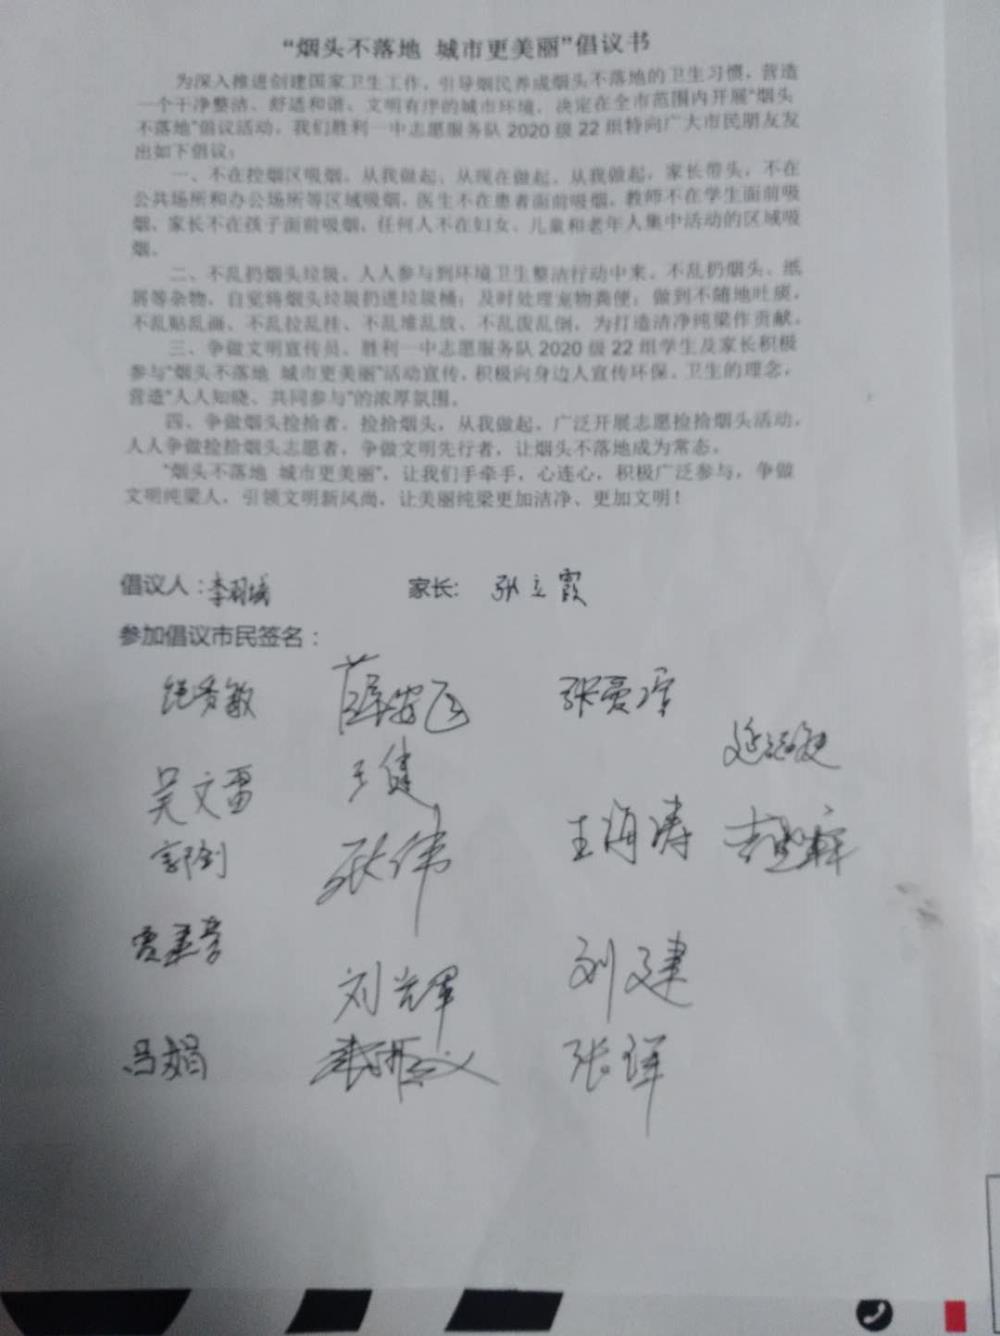 “烟头不落地 城市更美丽”倡议书
为深入推进创建国家卫生工作，引导烟民养成烟头不落地的卫生习惯，营造
一个干净整洁、舒适和谐、文明有序的城市环境，决定在全市范围内开展“烟头
不落地”倡议活动，我们胜利一中志愿服务队 2020 级 22 组特向广大市民朋友发
出如下倡议：
一、不在控烟区吸烟。从我做起，从现在做起。从我做起，家长带头，不在
公共场所和办公场所等区域吸烟，医生不在患者面前吸烟，教师不在学生面前吸
烟，家长不在孩子面前吸烟，任何人不在妇女、儿童和老年人集中活动的区域吸
烟。
二、不乱扔烟头垃圾。人人参与到环境卫生整洁行动中来，不乱扔烟头、纸
屑等杂物，自觉将烟头垃圾扔进垃圾桶；及时处理宠物粪便；做到不随地吐痰，
不乱贴乱画、不乱拉乱挂、不乱堆乱放、不乱泼乱倒，为打造洁净纯梁作贡献。
三、争做文明宣传员。胜利一中志愿服务队 2020 级 22 组学生及家长积极
参与“烟头不落地 城市更美丽”活动宣传，积极向身边人宣传环保、卫生的理念，
营造“人人知晓、共同参与”的浓厚氛围。
四、争做烟头捡拾者。捡拾烟头，从我做起。广泛开展志愿捡拾烟头活动，
人人争做捡拾烟头志愿者，争做文明先行者，让烟头不落地成为常态。
“烟头不落地 城市更美丽”，让我们手牵手，心连心，积极广泛参与，争做
文明纯梁人，引领文明新风尚，让美丽纯梁更加洁净、更加文明！
倡议人：李羽城 家长：张立霞
参加倡议市民签名：
薛安飞
吴文雷 王健
郭剑 张伟 王海涛
刘光辉 刘建
马娟 张辉